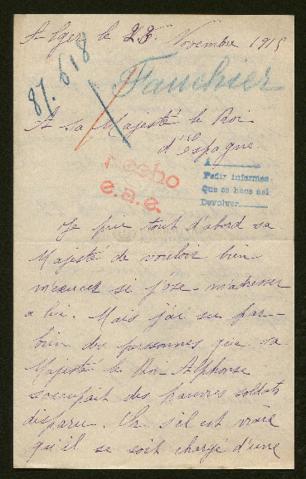 St Lger le 23 Novembre 1915
87.618
Fauchier
A sa Majesté le Roi
d'Espagne
hecho
e.a.e.
A
Pedir informes
Que se hace asi
Devolver
Je prie tout d'abord sa
Majesté de vouloir bien
m'excuser si j'ose m'adresser
a lui. Mais j'ai su par
bien des personnes que sa
Majesté le Roi Alphonse
s'occupait des pauvres soldats
disparu. Or s'il est vraie
qu'il se soit chargé d'une